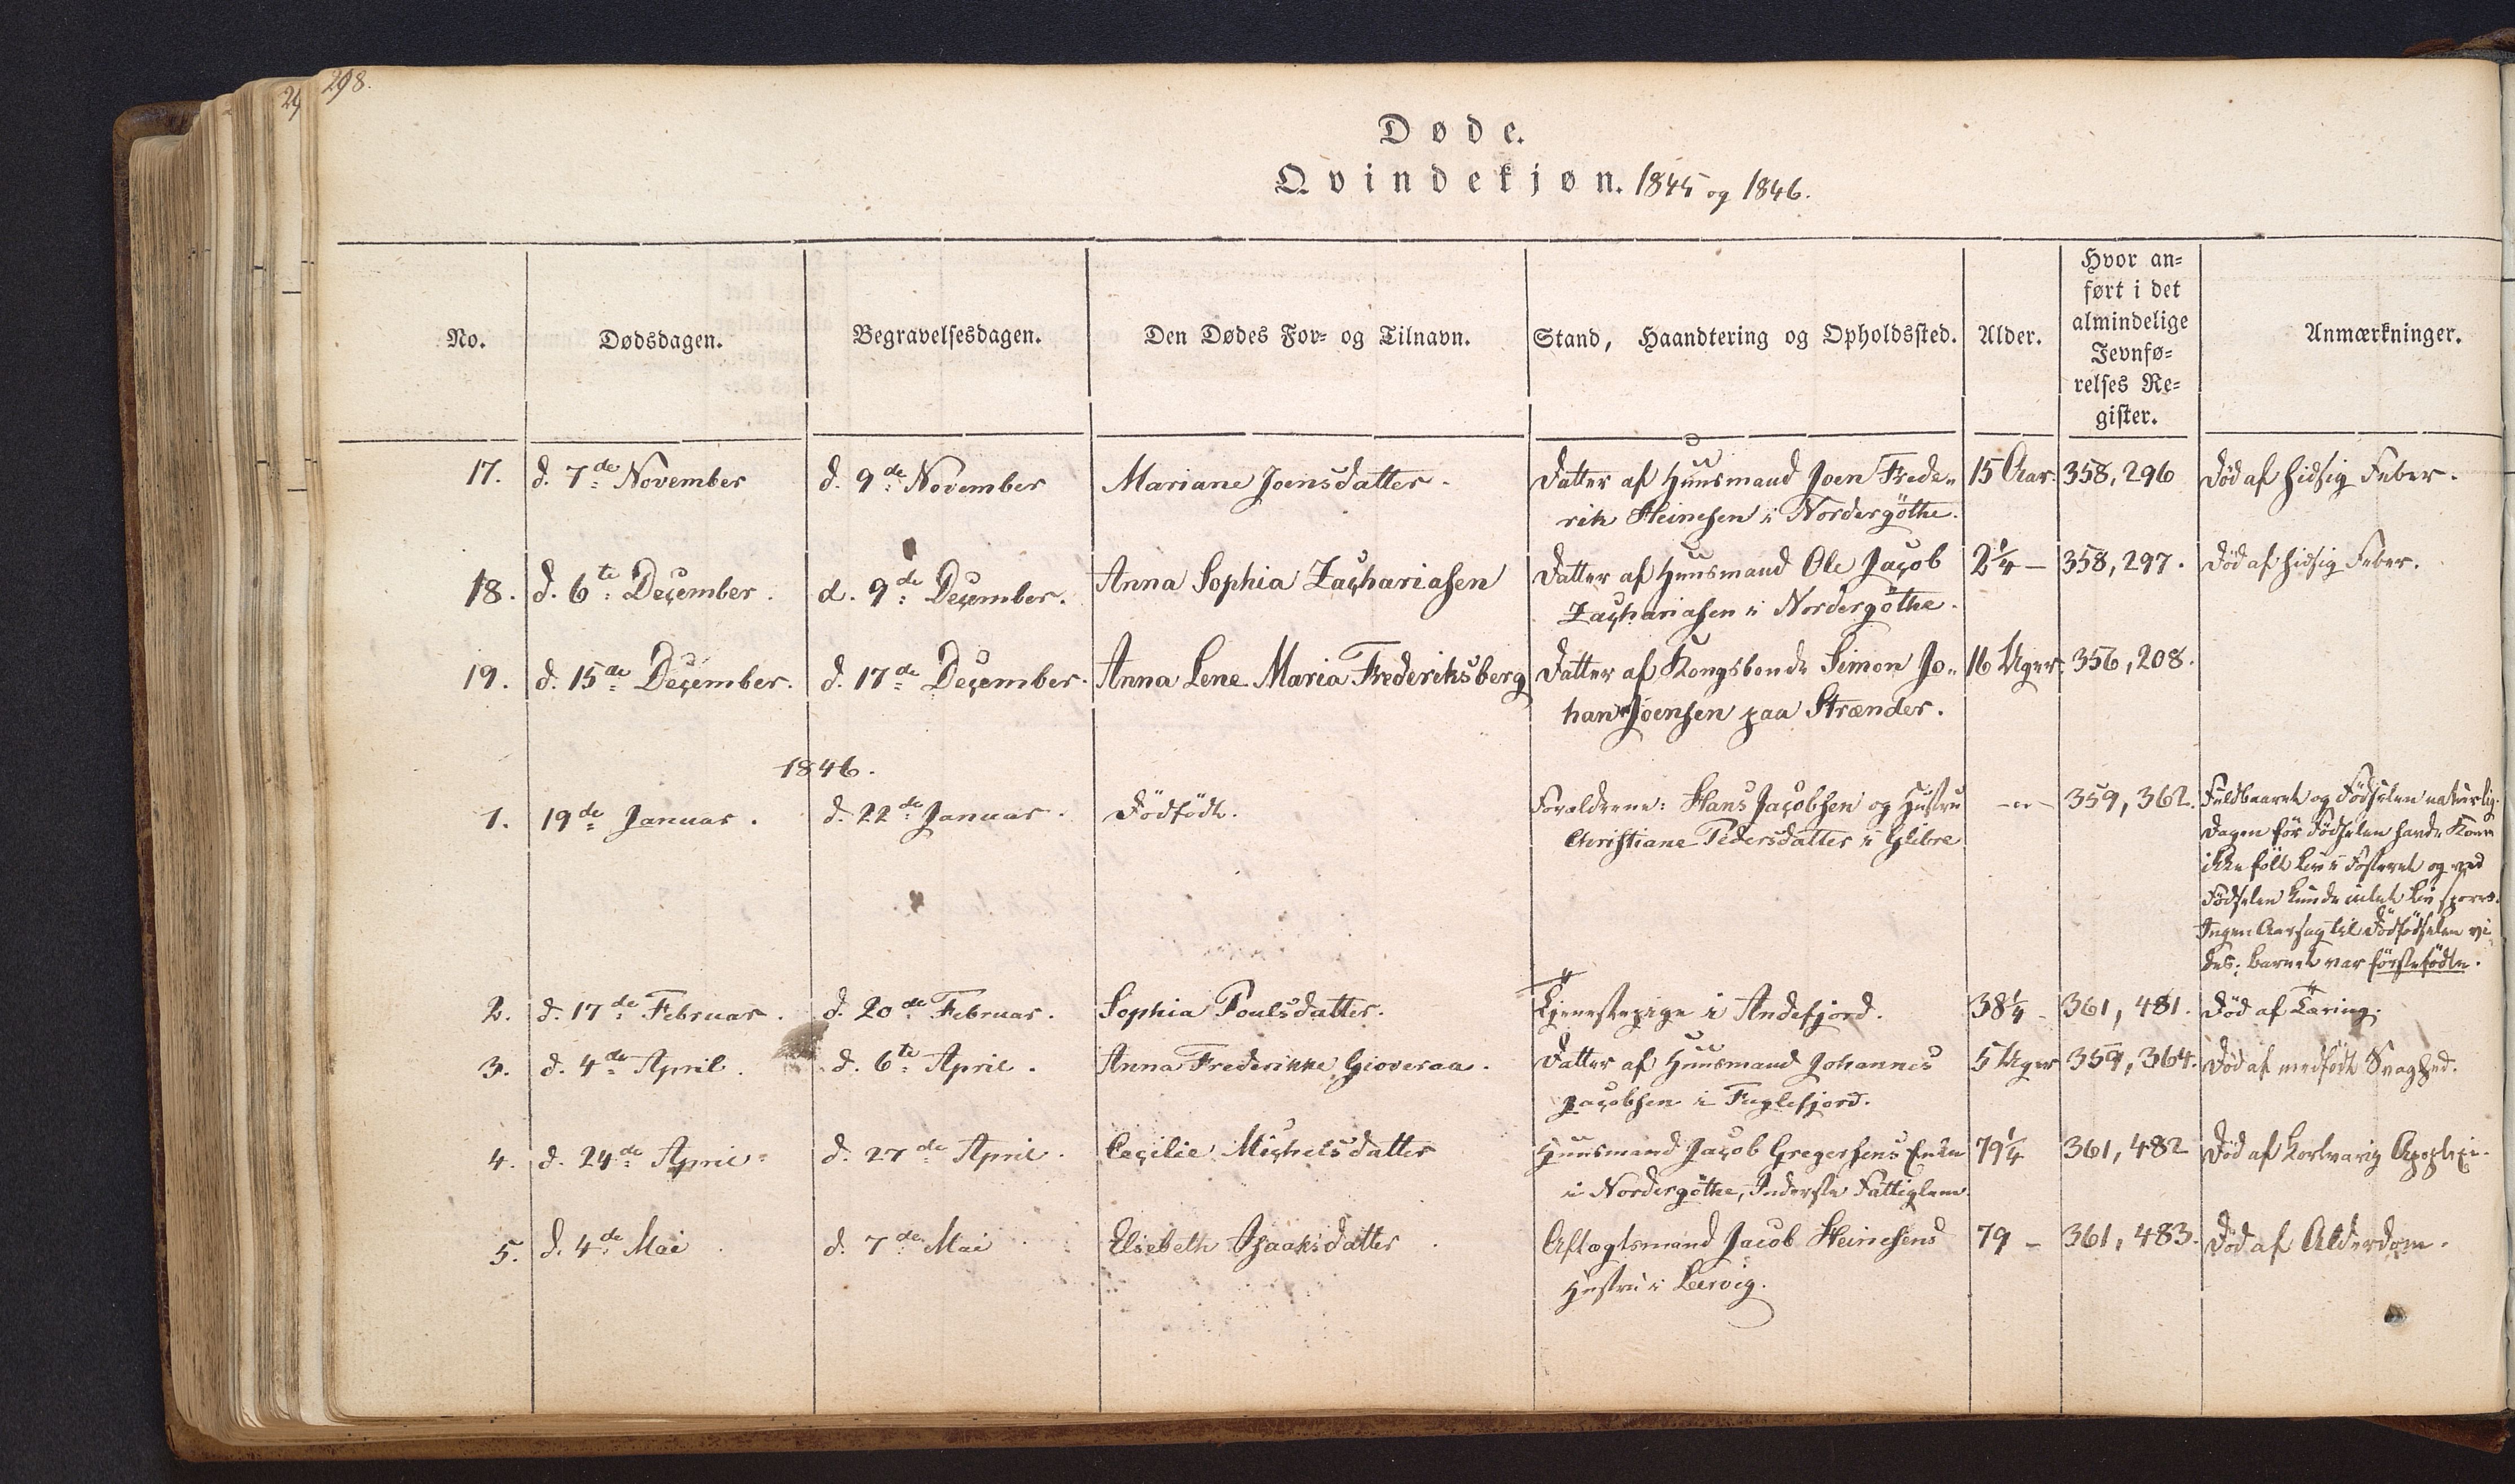 298.
29
Døde.
Qvindekjøn. 1845 og 1846.
No.
Dødsdagen.
Begravelsesdagen.
Den Dødes For- og Tilnavn.
Stand, Haandtering og Opholdssted.
Alder.
Hvor an-
ført i det
almindelige
Jevnfø-
relses Re-
gister.
Anmærkninger.
17. d. 7de November d. 9de November Mariane Joensdatter. Datter af Huusmand Joen Frede- 15 Aar. 358, 296 Død af hidsig Feber.
rik Heinesen i Nordergöthe.
18. d. 6te December. d. 9de December. Anna Sophia Zachariasen Datter af Huusmand Ole Jacob 2 1/4 — 358, 297. Død af hidsig Feber.
Zachariasen i Nordergöthe.
19. d. 15de December. d. 17de December. Anna Lene Maria Frederiksberg Datter af Kongsbonde Simon Jo- 16 Uger. 356, 208.
han Joensen paa Strænder.
1846.
1. 19de Januar. d. 22de Januar. Dödfödt. Forældrene: Hans Jacobsen og Hustru — " — 359, 362. Fuldbaaret og Födselen naturlig.
Christiane Pedersdatter i Glibre
Dagen för Födselen havde Konen
ikke fölt Liv i Fosteret og ved
Födselen kunde intet Liv spores.
Ingen Aarsag til Dödfödselen vi-
des; Barnet var förstefödte.
2. d. 17de Februar. d. 20de Februar. Sophia Poulsdatter. Tjenestepige i Andefjord. 38 1/4 — 361, 481. Död af Tæring.
3. d. 4de April. d. 6te April. Anna Frederikke Gioveraa. Datter af Huusmand Johannes 5 Uger 359, 364. Död af medfödt Svaghed.
Jacobsen i Fuglefjord.
4. d. 24de April. d. 27de April. Cecilie Michelsdatter Huusmand Jacob Gregersens Enke 79 1/4 361, 482 Död af kortvarig Apoplexi.
i Nordergöthe, Inderste Fattiglem.
5. d. 4de Mai d. 7de Mai Elsebeth Isaaksdatter Aftægtsmand Jacob Heinesens 79 — 361, 483. Död af Alderdom.
Hustru i Leervig.